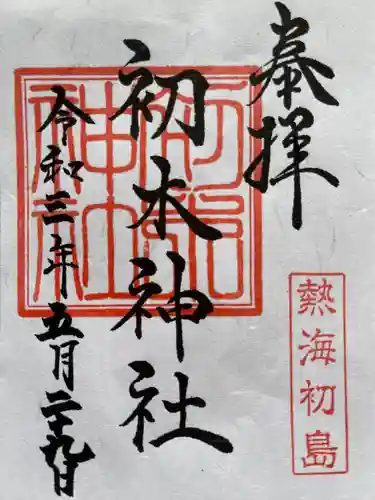 奉拝
初木神社
令和三年五月二十九日
熱海初島